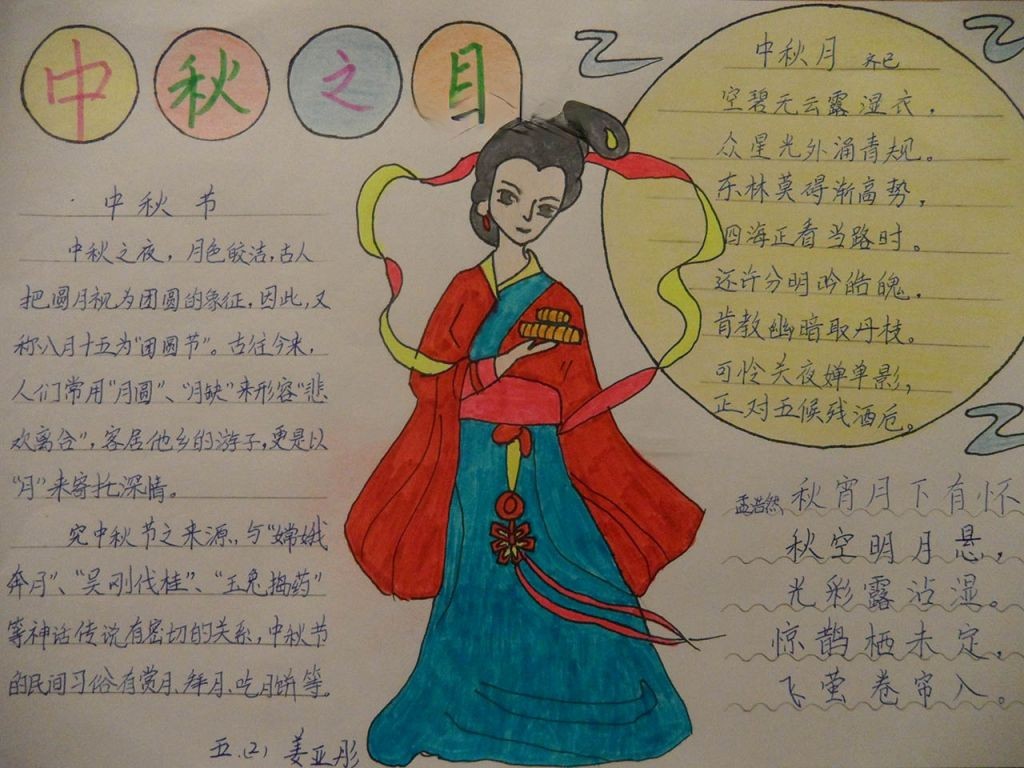 中秋之月
中秋节
中秋之夜，月色皎洁，古人
把圆月视为团圆的象征，因此，又
称八月十五为“团圆节”。古往今来，
人们常用“月圆”、“月缺”来形容“悲
欢离合”，客居他乡的游子，更是以
“月”来寄托深情。
究中秋节之来源，与“嫦娥
奔月”、“吴刚伐桂”、“玉兔捣药”
等神话传说有密切的关系，中秋节
的民间习俗有赏月、拜月、吃月饼等。
五.(2) 姜亚彤
中秋月 齐己
空碧无云露湿衣，
众星光外涌青规。
东林莫碍渐高势，
四海正看当路时。
还许分明吟皓魄，
肯教幽暗取丹枝。
可怜关夜婵单影，
正对五候残酒卮。
孟浩然 秋宵月下有怀
秋空明月悬，
光彩露沾湿。
惊鹊栖未定，
飞萤卷帘入。